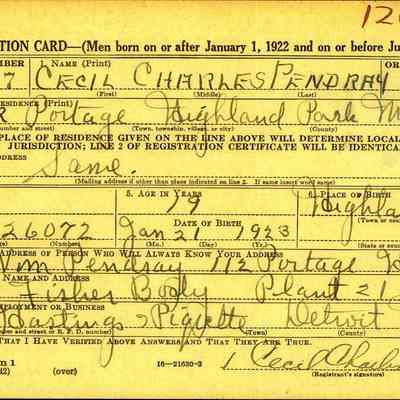 120
TION CARD—(Men born on or after January 1, 1922 and on or before Ju
MBER 1. NAME (Print) OR
7 CECIL CHARLES PENDRAY
(First) (Middle) (Last)
RESIDENCE (Print)
R Portage Highland Park M
umber and street) (Town, township, village, or city) (County)
PLACE OF RESIDENCE GIVEN ON THE LINE ABOVE WILL DETERMINE LOCAL
JURISDICTION; LINE 2 OF REGISTRATION CERTIFICATE WILL BE IDENTICA
ADDRESS
Same.
(Mailing address if other than place indicated on line 2. If same insert word same)
5. AGE IN YEARS 6. PLACE OF BIRTH
19 Highla
(Town or coun
DATE OF BIRTH
26072 Jan 21 1923
(Number) (Mo.) (Day) (Yr.) (State or coun
ADDRESS OF PERSON WHO WILL ALWAYS KNOW YOUR ADDRESS
Wm Pendray 112 Portage
NAME AND ADDRESS
Fisher Body Plant 21
EMPLOYMENT OR BUSINESS
Hastings & Piquette Detroit
umber and street or R. F. D. number) (Town) (County)
THAT I HAVE VERIFIED ABOVE ANSWERS AND THAT THEY ARE TRUE.
m 1
42) (over) 16—21630-2 Cecil Charles
(Registrant's signature)